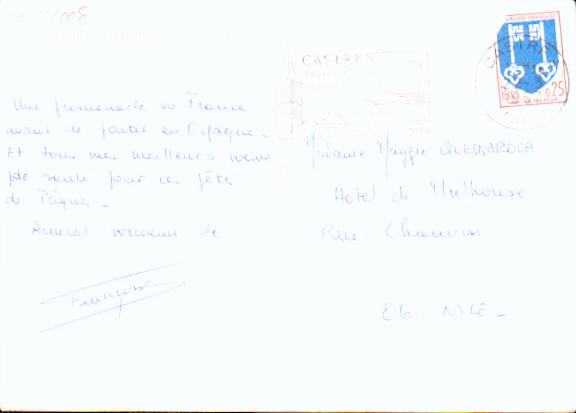 CASTRES
CASTRES
0,25
Une promenade en France
avant de partir en Espagne -
Et tous mes meilleurs voeux
de santé pour ces fêtes
de Pâques -
Amical souvenir de
Françoise
Madame Maggie
Hotel de Mulhouse
Rue Chauvain
06 - NICE -